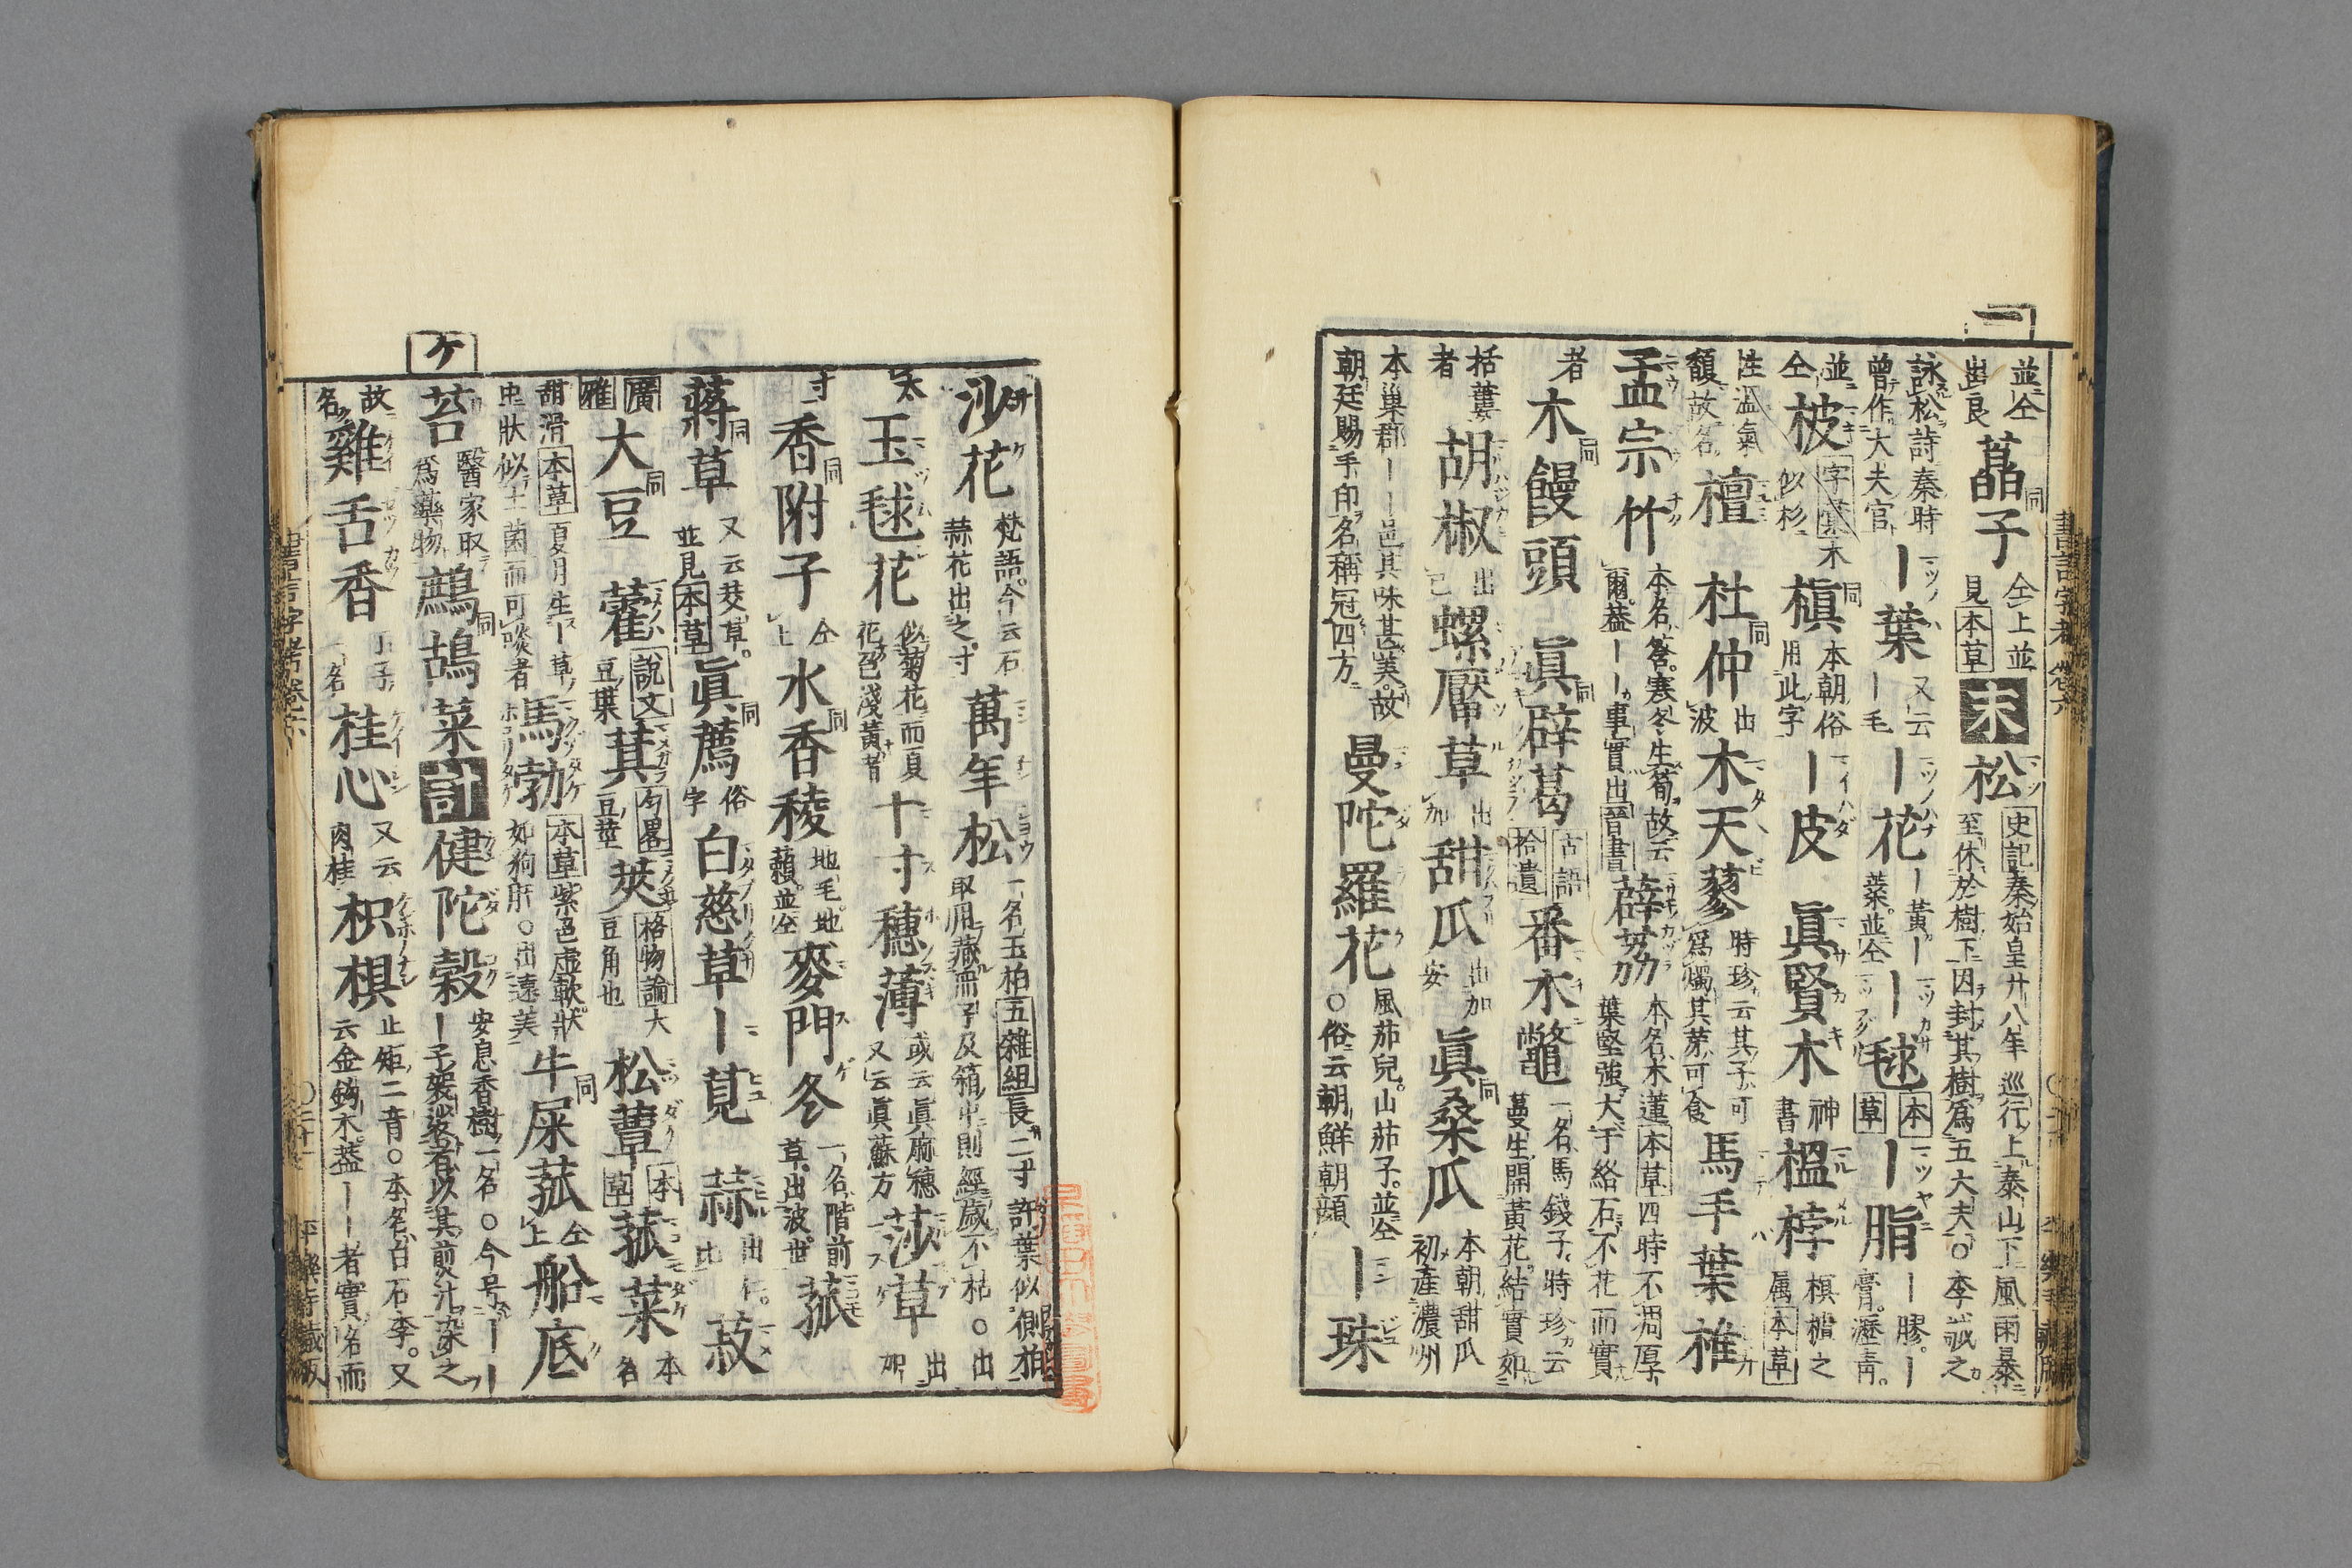 並仝出良 藠子同 仝上並見本草 末 松 史記秦始皇廿八年巡行上泰山下風雨暴至休於樹下因封其樹爲五大夫○李誠之
詠松詩秦時曾作大夫官 ー葉 又云ー毛 ー花 ー黃ー蘂並仝 ー毬 本草 ー脂 ー膠ー膏瀝靑
並仝 柀 字彙木似杉 槇同 本朝俗用此字 ー皮 眞賢木 神書 榲桲 榠樝之属本草
性溫氣馥故名 檀 杜仲同 出波 木天蓼 時珍云其子可爲燭其芽可食 馬手葉椎
孟宗竹 本名筨寒冬生筍故云爾蓋ーー事實出晉書 薜茘 本名木蓮本草四時不凋厚葉堅強大于絡石不花而實
者 木饅頭同 眞辟葛同 古語拾遺 番木鼈 一名馬錢子時珍云蔓生開黃花結實如
栝蔞者 胡椒 出己 螺厴草 出加 甜瓜 出加安 眞桑瓜同 本朝甜瓜初產濃州
本巢郡ーー邑其味甚美故朝廷賜手印名稱冠四方 曼陀羅花 風茄兒山茄子並仝○俗云朝鮮朝顔 ー珠
沙花 梵語今云石蒜花出之寸 萬年松 一名玉柏五雜組長二寸許葉似側柏取用藏而子及箱中則經歲不枯○出
太 玉毬花 似菊花而夏花色淺黃者 十寸穗薄 或云眞麻穗又云眞蘇方 莎草 出加
寸 香附子同 仝上 水香稜同 地毛地藾並仝 麥門冬 一名階前草出波世 菰
蔣草同 又云茭草並見本草 眞薦同 俗字 白慈草 ー莧 蒜 出仁比 菽
廣雅 大豆同 藿 說文豆葉 萁 匀畧豆莖 莢 格物論大豆角也 松蕈 本草 菰菜 本名
甜滑本草夏月生ー草中狀似土菌而可啖者 馬勃 本草紫色虛軟狀如狗肝○出遠美 牛屎菰同 仝上 船底
苔 醫家取爲藥物 鷓鴣菜同 計 健陀穀 安息香樹一名○今号ーーー子袈裟者以其煎汁染之
故名 雞舌香 丁子一名 桂心 又云肉桂 枳椇 止矩二音○本名白石李又云金鉤木蓋ーー者實名而
ケ
書言字考卷六
平樂寺藏版